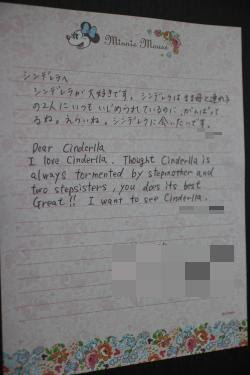 Minnie Mouse
シンデレラへ
シンデレラが大好きです。シンデレラはまま母と連れ子
の2人にいつもいじめられているのに、がんばって
るね。えらいね。シンデレラに会いたいです。
Dear Cinderlla
I love Cinderlla. Thought Cinderlla is
always tormented by stepmother and
two stepsisters, you does its best
Great!! I want to see Cinderlla.